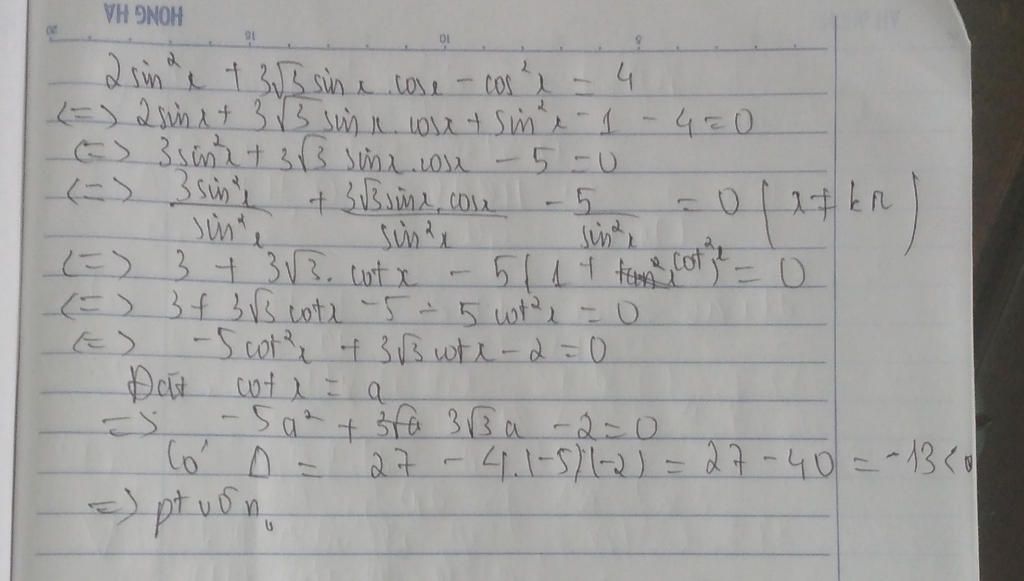 HONG HA
20 15 10 5
2sin²x + 3√3 sinx.cosx - cos²x = 4
<=> 2sinx + 3√3 sinx.cosx + sin²x - 1 - 4 = 0
<=> 3sin²x + 3√3 sinx.cosx - 5 = 0
<=> 3sin²x/sin²x + 3√3sinx.cosx/sin²x - 5/sin²x = 0 (x ≠ kπ)
<=> 3 + 3√3.cotx - 5(1 + cot²x) = 0
<=> 3 + 3√3 cotx - 5 - 5cot²x = 0
<=> -5cot²x + 3√3 cotx - 2 = 0
Đặt cotx = a
=> -5a² + 3√3a - 2 = 0
Có Δ = 27 - 4.(-5)(-2) = 27 - 40 = -13 < 0
=> pt vô n